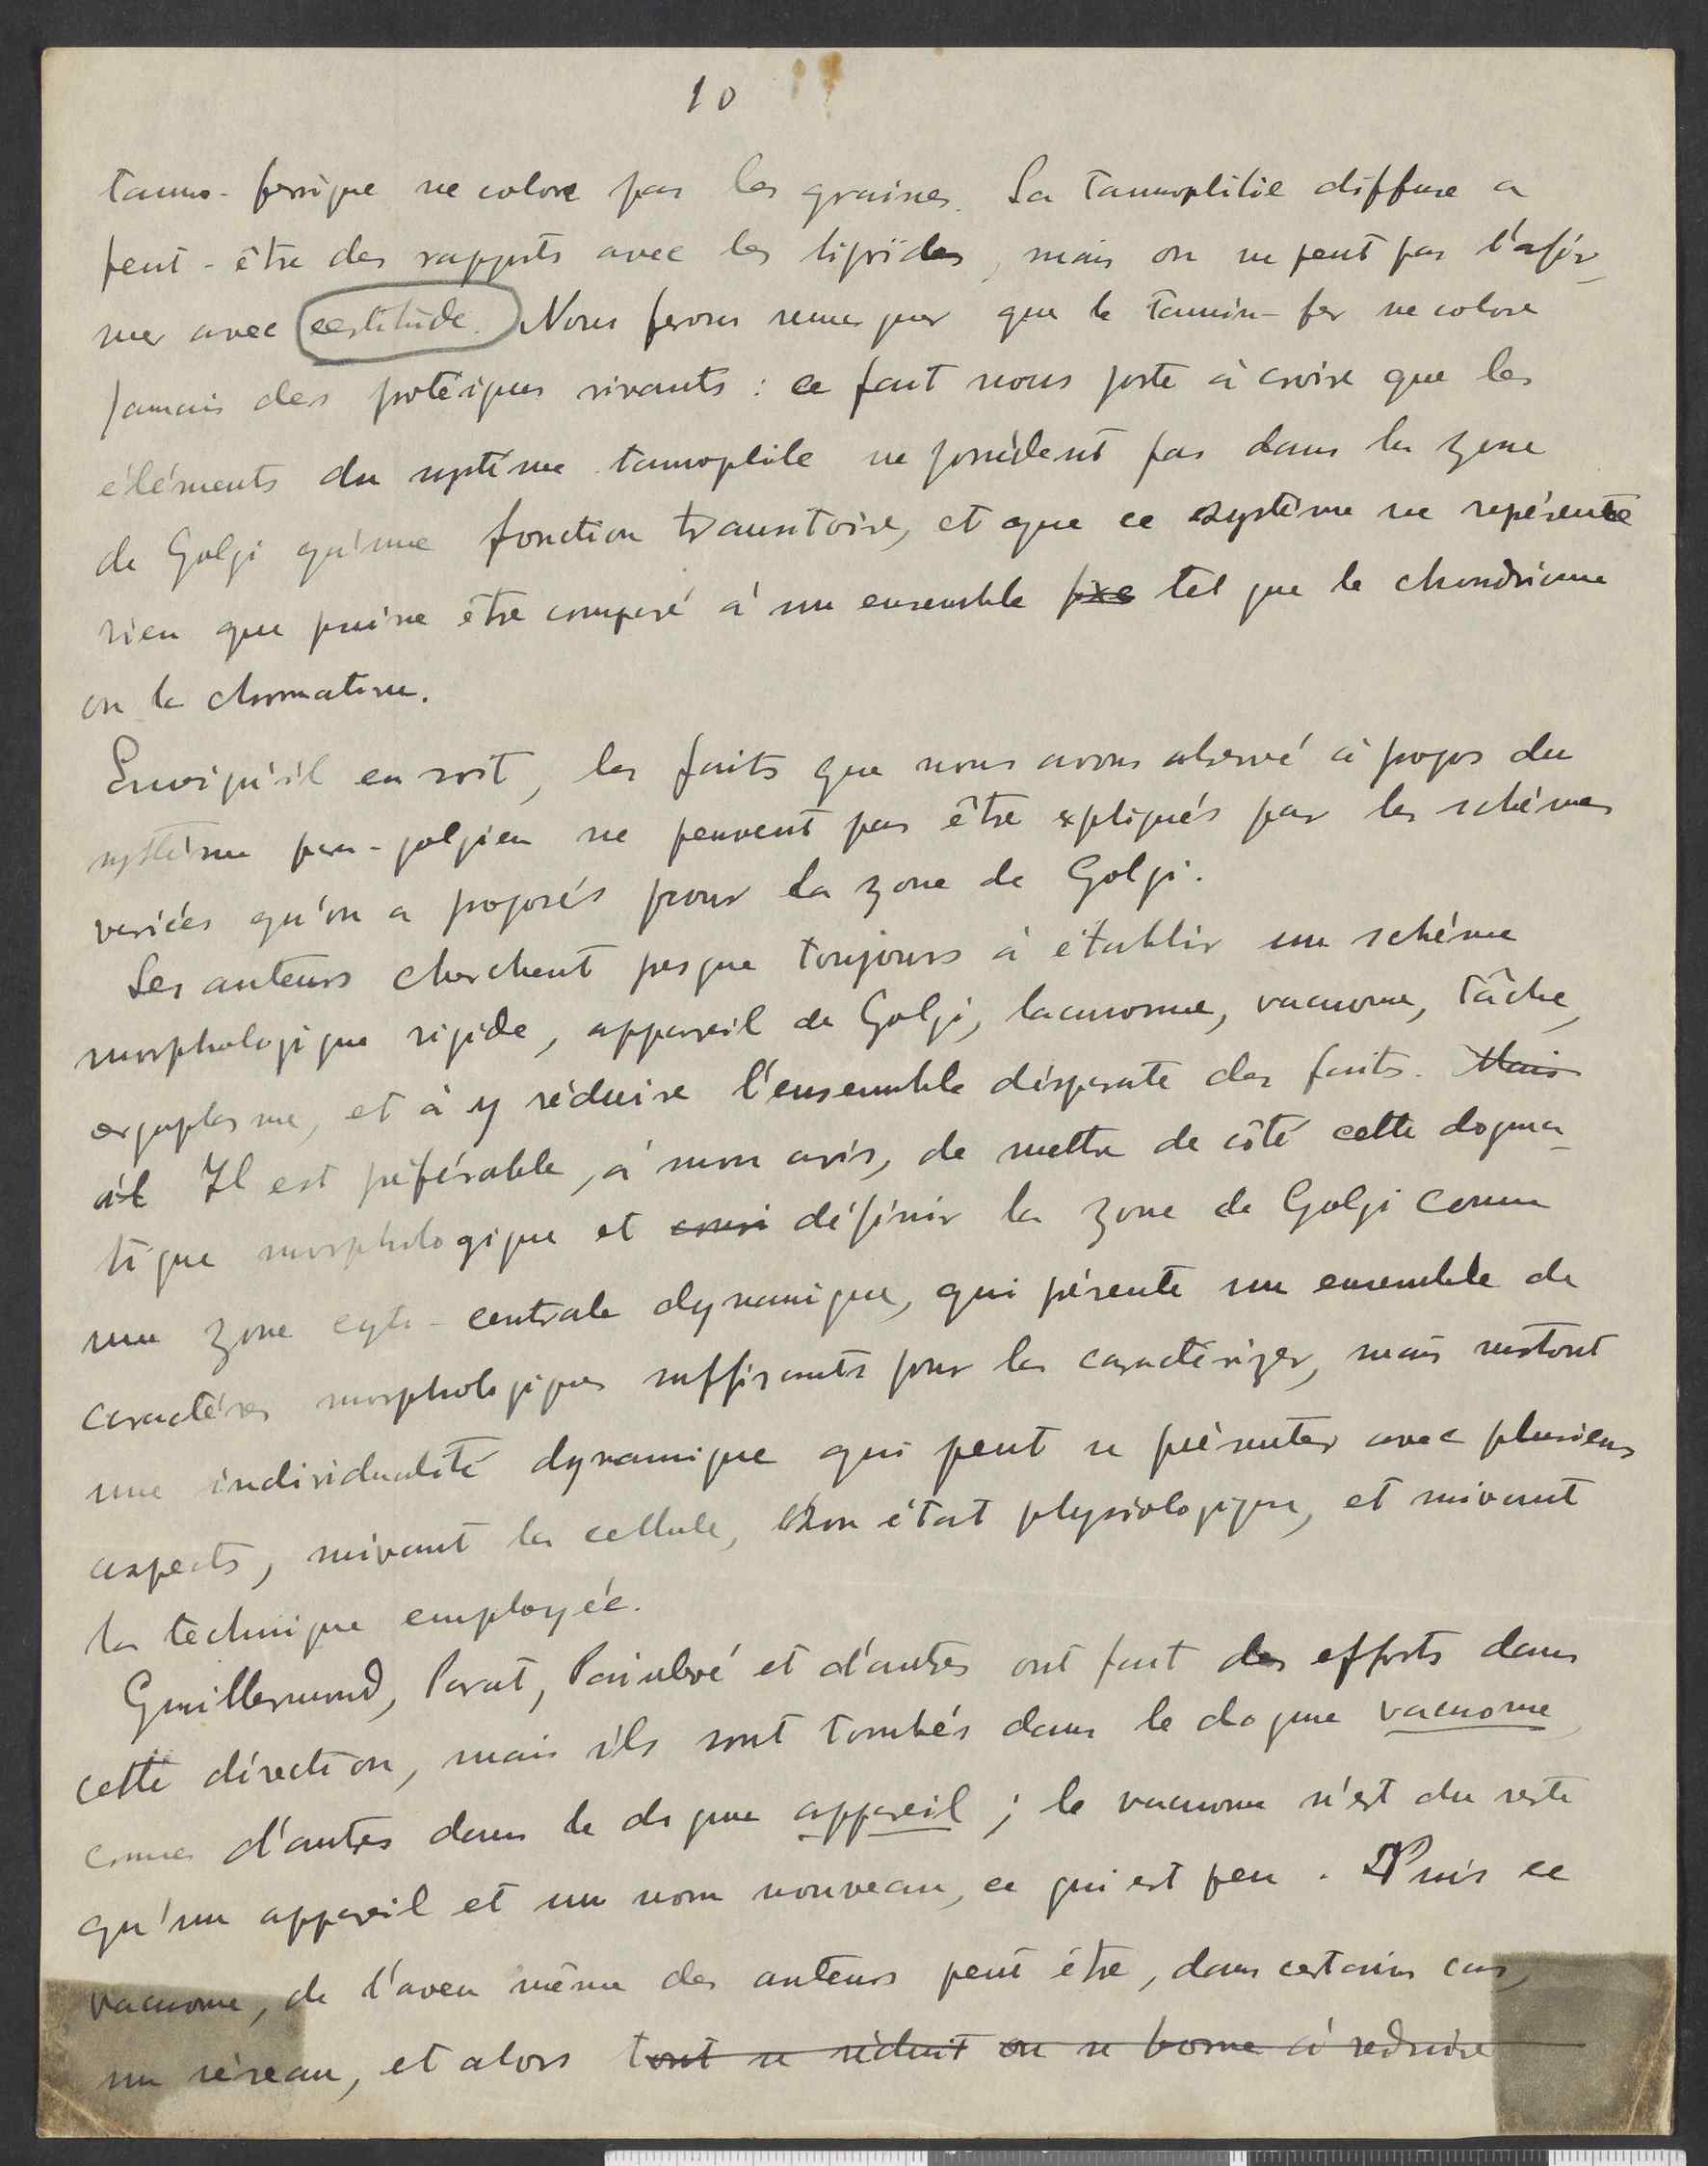 10
tanno-ferrique ne colore pas les graines. La tannophilie diffuse a
peut-être des rapports avec les lipïdes, mais on ne peut pas l'afir-
mer avec certitude. Nous ferons remarquer que le tannin-fer ne colore
jamais des protéiques vivants : ce fait nous porte à croire que les
éléments du système tannophile ne possèdent pas dans la zone
de Golgi qu'une fonction transitoire, et que ce système ne représente
rien que puisse être comparé à un ensemble fixe tel que le chondriome
ou la chromatine.
Quoiqu'il en soit, les faits que nous avons observé à propos du
système para-golgien ne peuvent pas être expliqués par les schémes
variées qu'on a proposés pour la zone de Golgi.
Les auteurs cherchent presque toujours à établir un schéme
morphologique rigide, appareil de Golgi, lacunome, vacuome, tâche,
ergoplasme, et à y réduire l'ensemble disparate des faits. Mais
il Il est préférable, à mon avis, de mettre de côté cette dogma-
tique morphologique et définir la zone de Golgi comme
une zone cyto-centrale dynamique, qui présente un ensemble de
caractéres morphologiques suffisants pour la caractériser, mais surtout
une individualité dynamique qui peut se présenter avec plusieurs
aspects, suivant la cellule, son état physiologique, et suivant
la technique employée.
Guilliermond, Parat, Painlevé et d'autres ont fait des efforts dans
cette direction, mais ils sont tombés dans le dogme vacuome,
comme d'autres dans le dogme appareil ; le vacuome n'est du reste
qu'un appareil et un nom nouveau, ce qui est peu. Puis ce
vacuome, de l'aveu même des auteurs peut être, dans certains cas,
un réseau, et alors tout se réduit on se borne à réduire